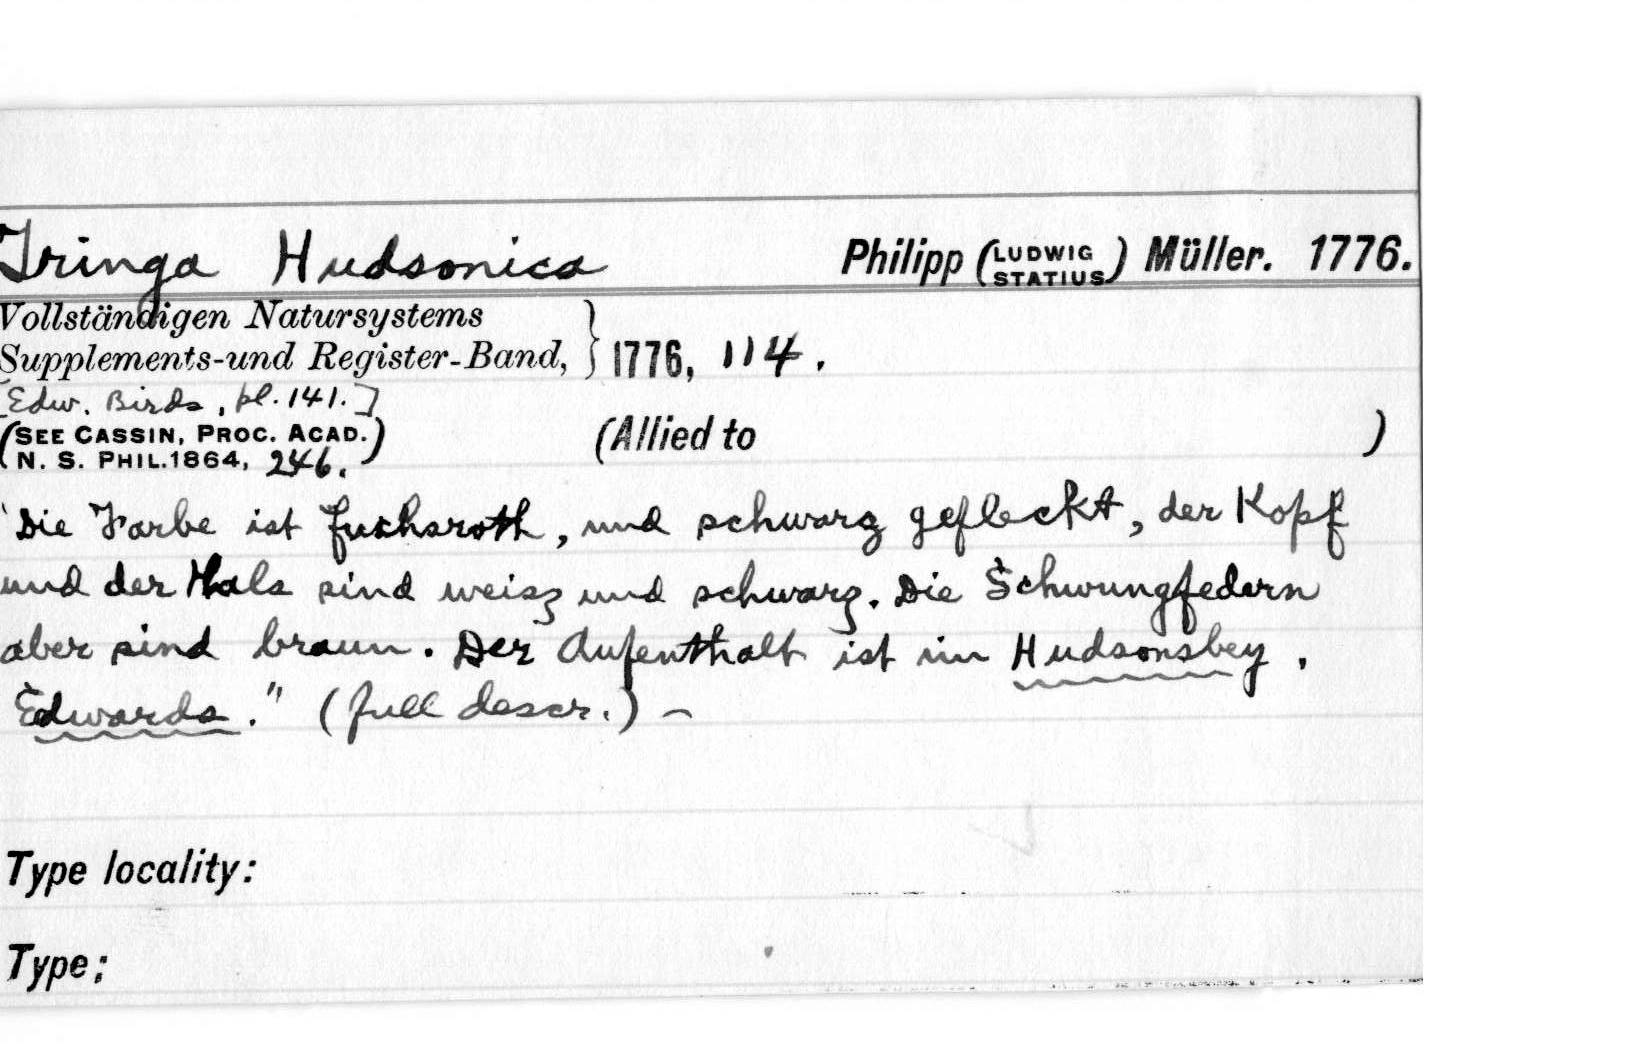 Tringa Hudsonica Philipp (LUDWIG STATIUS) Müller. 1776.
Vollständigen Natursystems
Supplements-und Register-Band, } 1776, 114.
[Edw. Birds, pl. 141.]
(SEE CASSIN, PROC. ACAD.
N. S. PHIL. 1864, 246.) (Allied to )
"Die Farbe ist fuchsroth, und schwarz gefleckt, der Kopf
und der Hals sind weisz und schwarz. Die Schwungfedern
aber sind braun. Der Aufenthalt ist im Hudsonsbey.
Edwards." (full descr.) —
Type locality:
Type: